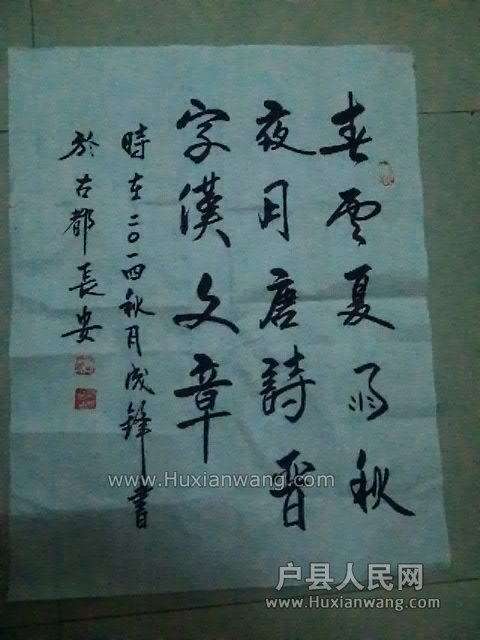 春雲夏雨秋
夜月唐詩晉
字漢文章
時在二〇一四秋月成鋒書
於古都長安
www.Huxianwang.com
户县人民网
www.Huxianwang.com